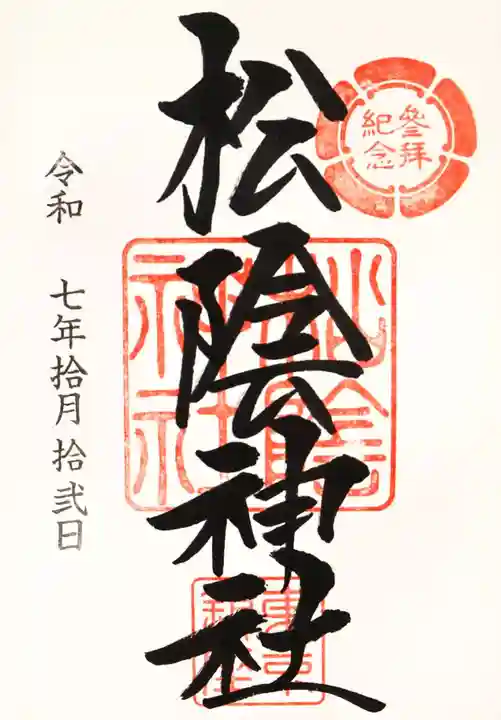 參拜
紀念
松陰神社
松陰
神社
令和 七年拾月拾弐日